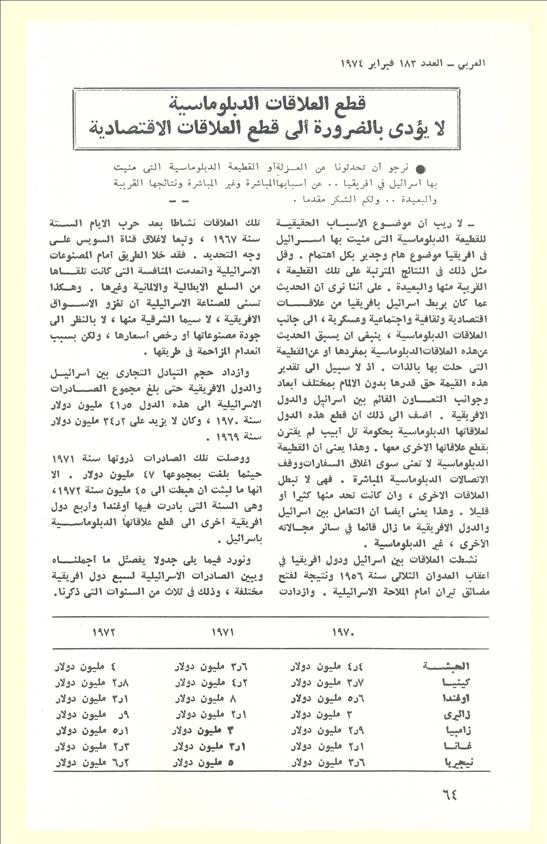 العربي – العدد ١٨٣ فبراير ١٩٧٤
قطع العلاقات الدبلوماسية
لا يؤدى بالضرورة ألى قطع العلاقات الاقتصادية
● نرجو أن تحدثونا عن العزلةأو القطيعة الدبلوماسية التى منيت
بها اسرائيل في افريقيا .. عن أسبابهاالمباشرة وغير المباشرة ونتائجها القريبة
والبعيدة .. ولكم الشكر مقدما . – –
– لا ريب أن موضوع الأسباب الحقيقية
للقطيعة الدبلوماسية التى منيت بها اسرائيل
في افريقيا موضوع هام وجدير بكل اهتمام . وقل
مثل ذلك في النتائج المترتبة على تلك القطيعة ،
القريبة منها والبعيدة . على أننا نرى أن الحديث
عما كان يربط اسرائيل بافريقيا من علاقات
اقتصادية وثقافية واجتماعية وعسكرية ، الى جانب
العلاقات الدبلوماسية ، ينبغى أن يسبق الحديث
عن هذه العلاقات الدبلوماسية بمفردها أو عن القطيعة
التى حلت بها بالذات . اذ لا سبيل الى تقدير
هذه القيمة حق قدرها بدون الالمام بمختلف أبعاد
وجوانب التعاون القائم بين اسرائيل والدول
الافريقية . أضف الى ذلك أن قطع هذه الدول
لعلاقاتها الدبلوماسية بحكومة تل أبيب لم يقترن
بقطع علاقاتها الاخرى معها . وهذا يعنى أن القطيعة
الدبلوماسية لا تعنى سوى اغلاق السفارات ووقف
الاتصالات الدبلوماسية المباشرة . فهى لا تبطل
العلاقات الاخرى ، وان كانت تحد منها كثيرا أو
قليلا . وهذا يعنى أيضا أن التعامل بين اسرائيل
والدول الافريقية ما زال قائما في سائر مجالاته
الأخرى ، غير الدبلوماسية .
نشطت العلاقات بين اسرائيل ودول افريقيا في
أعقاب العدوان الثلاثى سنة ١٩٥٦ ونتيجة لفتح
مضائق تيران أمام الملاحة الاسرائيلية . وازدادت
تلك العلاقات نشاطا بعد حرب الايام الستة
سنة ١٩٦٧ ، وتبعا لاغلاق قناة السويس على
وجه التحديد . فقد خلا الطريق أمام المصنوعات
الاسرائيلية وانعدمت المنافسة التى كانت تلقاها
من السلع الايطالية والالمانية وغيرها . وهكذا
تسنى للصناعة الاسرائيلية أن تغزو الاسواق
الافريقية ، لا سيما الشرقية منها ، لا بالنظر الى
جودة مصنوعاتها أو رخص أسعارها ، ولكن بسبب
انعدام المزاحمة في طريقها .
وازداد حجم التبادل التجارى بين اسرائيل
والدول الافريقية حتى بلغ مجموع الصادرات
الاسرائيلية الى هذه الدول ٤١٫٥ مليون دولار
سنة ١٩٧٠ ، وكان لا يزيد على ٣٤٫٢ مليون دولار
سنة ١٩٦٩ .
ووصلت تلك الصادرات ذروتها سنة ١٩٧١
حينما بلغت بمجموعها ٤٧ مليون دولار . الا
انها ما لبثت ان هبطت الى ٤٥ مليون سنة ١٩٧٢،
وهى السنة التى بادرت فيها أوغندا وأربع دول
افريقية أخرى الى قطع علاقاتها الدبلوماسية
باسرائيل .
ونورد فيما يلى جدولا يفصّل ما أجملناه
ويبين الصادرات الاسرائيلية لسبع دول افريقية
مختلفة ، وذلك في ثلاث من السنوات التى ذكرنا.
١٩٧٠ ١٩٧١ ١٩٧٢
الحبشة ٤٫٤ مليون دولار ٦٫٣ مليون دولار ٤ مليون دولار
كينيا ٧٫٣ مليون دولار ٤٫٢ مليون دولار ٨٫٢ مليون دولار
اوغندا ٦٫٥ مليون دولار ٨ مليون دولار ١٫٣ مليون دولار
زائرى ٣ مليون دولار ١٫٢ مليون دولار ٫٩ مليون دولار
زامبيا ٢٫٩ مليون دولار ٣ مليون دولار ١٫٥ مليون دولار
غانا ١٫٢ مليون دولار ١٫٣ مليون دولار ٣٫٢ مليون دولار
نيجيريا ٦٫٣ مليون دولار ٥ مليون دولار ٢٫٦ مليون دولار
٦٤